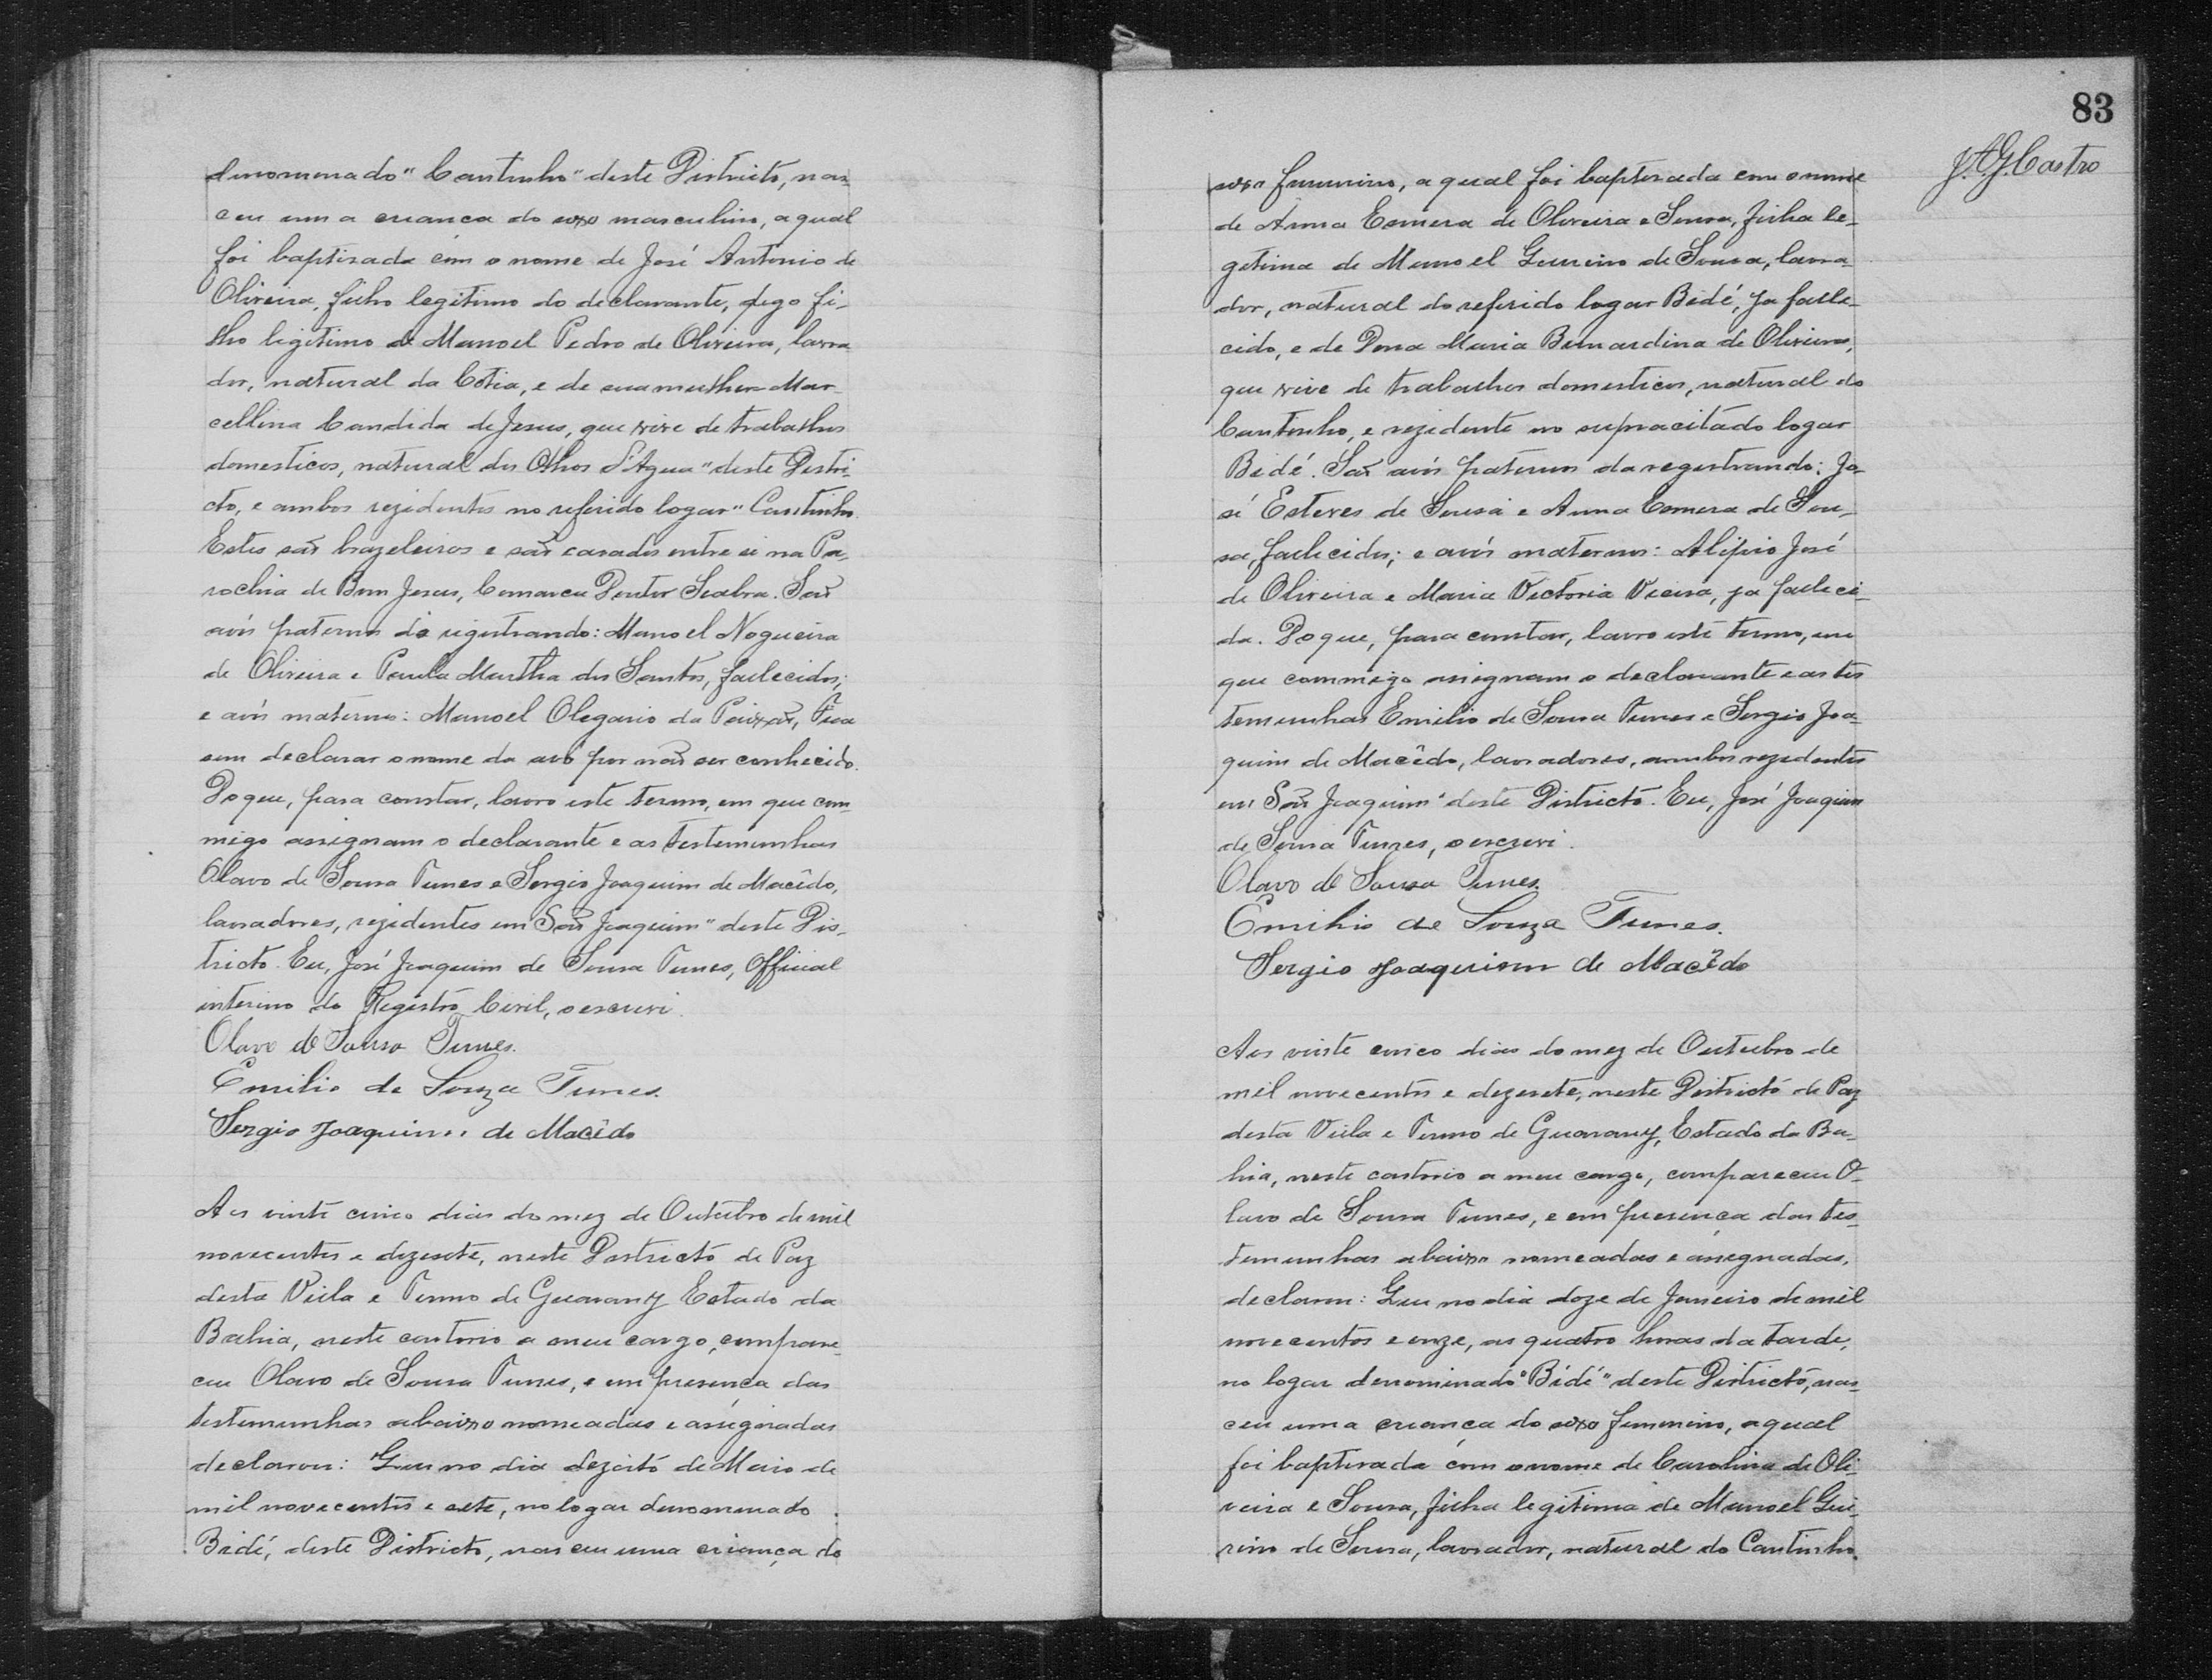 denomenado "Cantinho" deste Districto, nas-
ceu uma criança do sexo masculino, a qual
foi baptisada com o nome de José Antonio de
Oliveira, filho legitimo do declarante, digo fi-
lho legitimo de Manoel Pedro de Oliveira, lavra
dor, natural da Cotia, e de sua mulher Mar-
cellina Candida de Jesus, que vive de trabalhos
domesticos, natural dos Olhos d'Agua" deste Distri-
cto, e ambos rezidentes no referido logar "Cantinho.
Estes são brazeleiros e são casados entre si na Pa-
rochia de Bom Jesus, Comarca Doutor Seabra. São
avós paternos do registrando: Manoel Nogueira
de Oliveira e Paula Martha dos Santos, fallecidos;
e avós maternos: Manoel Olegario da Paixão, Fica
sem declarar o nome da avó por não ser conhecido.
Do que, para constar, lavro este termo, em que com-
migo assignam o declarante e as testemunhas
Olavo de Sousa Tunes e Sergio Joaquim de Macêdo,
lavradores, rezidentes em São Joaquim" deste Dis-
tricto. Eu, José Joaquim de Sousa Tunes, Official
interino do Registro Civil, o escrevi.
Olavo de Sousa Tunes.
Emilio de Souza Tunes.
Sergio Joaquim de Macêdo
Aos vinte cinco dias do mez de Outubro de mil
novecentos e dezesete, neste Districto de Paz
desta Villa e Termo de Guarany Estado da
Bahia, neste cartorio a meu cargo, compare-
ceu Olavo de Sousa Tunes, e em presença das
testemunhas abaixo nomeadas e assignadas
declarou: Que no dia dezoito de Maio de
mil novecentos e sete, no logar denomenado
Bidé, deste Districto, nasceu uma criança do
83
J.A.G. Castro
sexo femenino, a qual foi baptisada com o nome
de Anna Esmera de Oliveira e Sousa, filha le-
gitima de Manoel Guirino de Sousa, lavra-
dor, natural do referido logar Bidé, ja falle-
cido, e de Dona Maria Bernardina de Oliveira,
que vive de trabalhos domesticos, natural do
Cantinho, e rezidente no supracitado logar
Bidé. São avós paternos da registrando: Jo-
sé Esteves de Sousa e Anna Esmera de Sou-
sa, fallecidos; e avós maternos: Alipio José
de Oliveira e Maria Victoria Vieira, ja falleci-
da. Do que, para constar, lavro este termo, em
que commigo assignam o declarante e as tes
temunhas Emilio de Sousa Tunes e Sergio Joa-
quim de Macêdo, lavradores, ambos rezidentes
em São Joaquim" deste Districto. Eu, José Joaquim
de Sousa Tunes, o escrevi.
Olavo de Sousa Tunes.
Emilio de Souza Tunes.
Sergio Joaquim de Macêdo
Aos vinte cinco dias do mez de Outubro de
mil novecentos e dezesete, neste Districto de Paz
desta Villa e Termo de Guarany, Estado da Ba-
hia, neste cartorio a meu cargo, compareceu O-
lavo de Sousa Tunes, e em presença das tes-
temunhas abaixo nomeadas e assegnadas,
declarou: Que no dia doze de Janeiro de mil
novecentos e onze, as quatro horas da tarde,
no logar denominado "Bidé" deste Districto, nas-
ceu uma criança do sexo femenino, a qual
foi baptisada com o nome de Carolina de Oli-
veira e Sousa, filha legitima de Manoel Gui-
rino de Sousa, lavrador, natural do Cantinho.